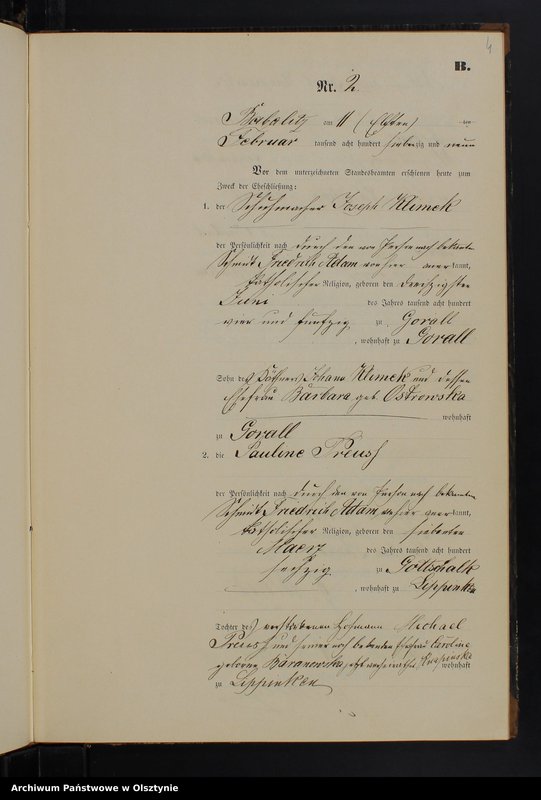 4
B.
Nr. 2.
am 11 (Elften) ten
Februar tausend acht hundert siebenzig und neun
Vor dem unterzeichneten Standesbeamten erschienen heute zum
Zweck der Eheschließung:
1. der Schuhmacher Joseph Klimek
der Persönlichkeit nach durch den von Person noch bekannten
Schmidt Friedrich Adam von hier anerkannt,
katholischer Religion, geboren den dreißigsten
Juni des Jahres tausend acht hundert
vier und funfzig zu Gorall
, wohnhaft zu Gorall
Sohn des Käthners Johann Klimek und dessen
Ehefrau Barbara geb. Ostrowska
wohnhaft
zu Gorall
2. die Pauline Preuss
der Persönlichkeit nach durch den von Person noch bekannten
Schmidt Friedrich Adam von hier anerkannt,
katholischer Religion, geboren den siebenten
Maerz des Jahres tausend acht hundert
sechzig zu Gottschalk
, wohnhaft zu Lippinken
Tochter des verstorbenen Hofmann Michael
Preuss und seiner noch lebenden Ehefrau Caroline
geborne Baranowska, jetzt verheirathete wohnhaft
zu Lippinken
Archiwum Państwowe w Olsztynie